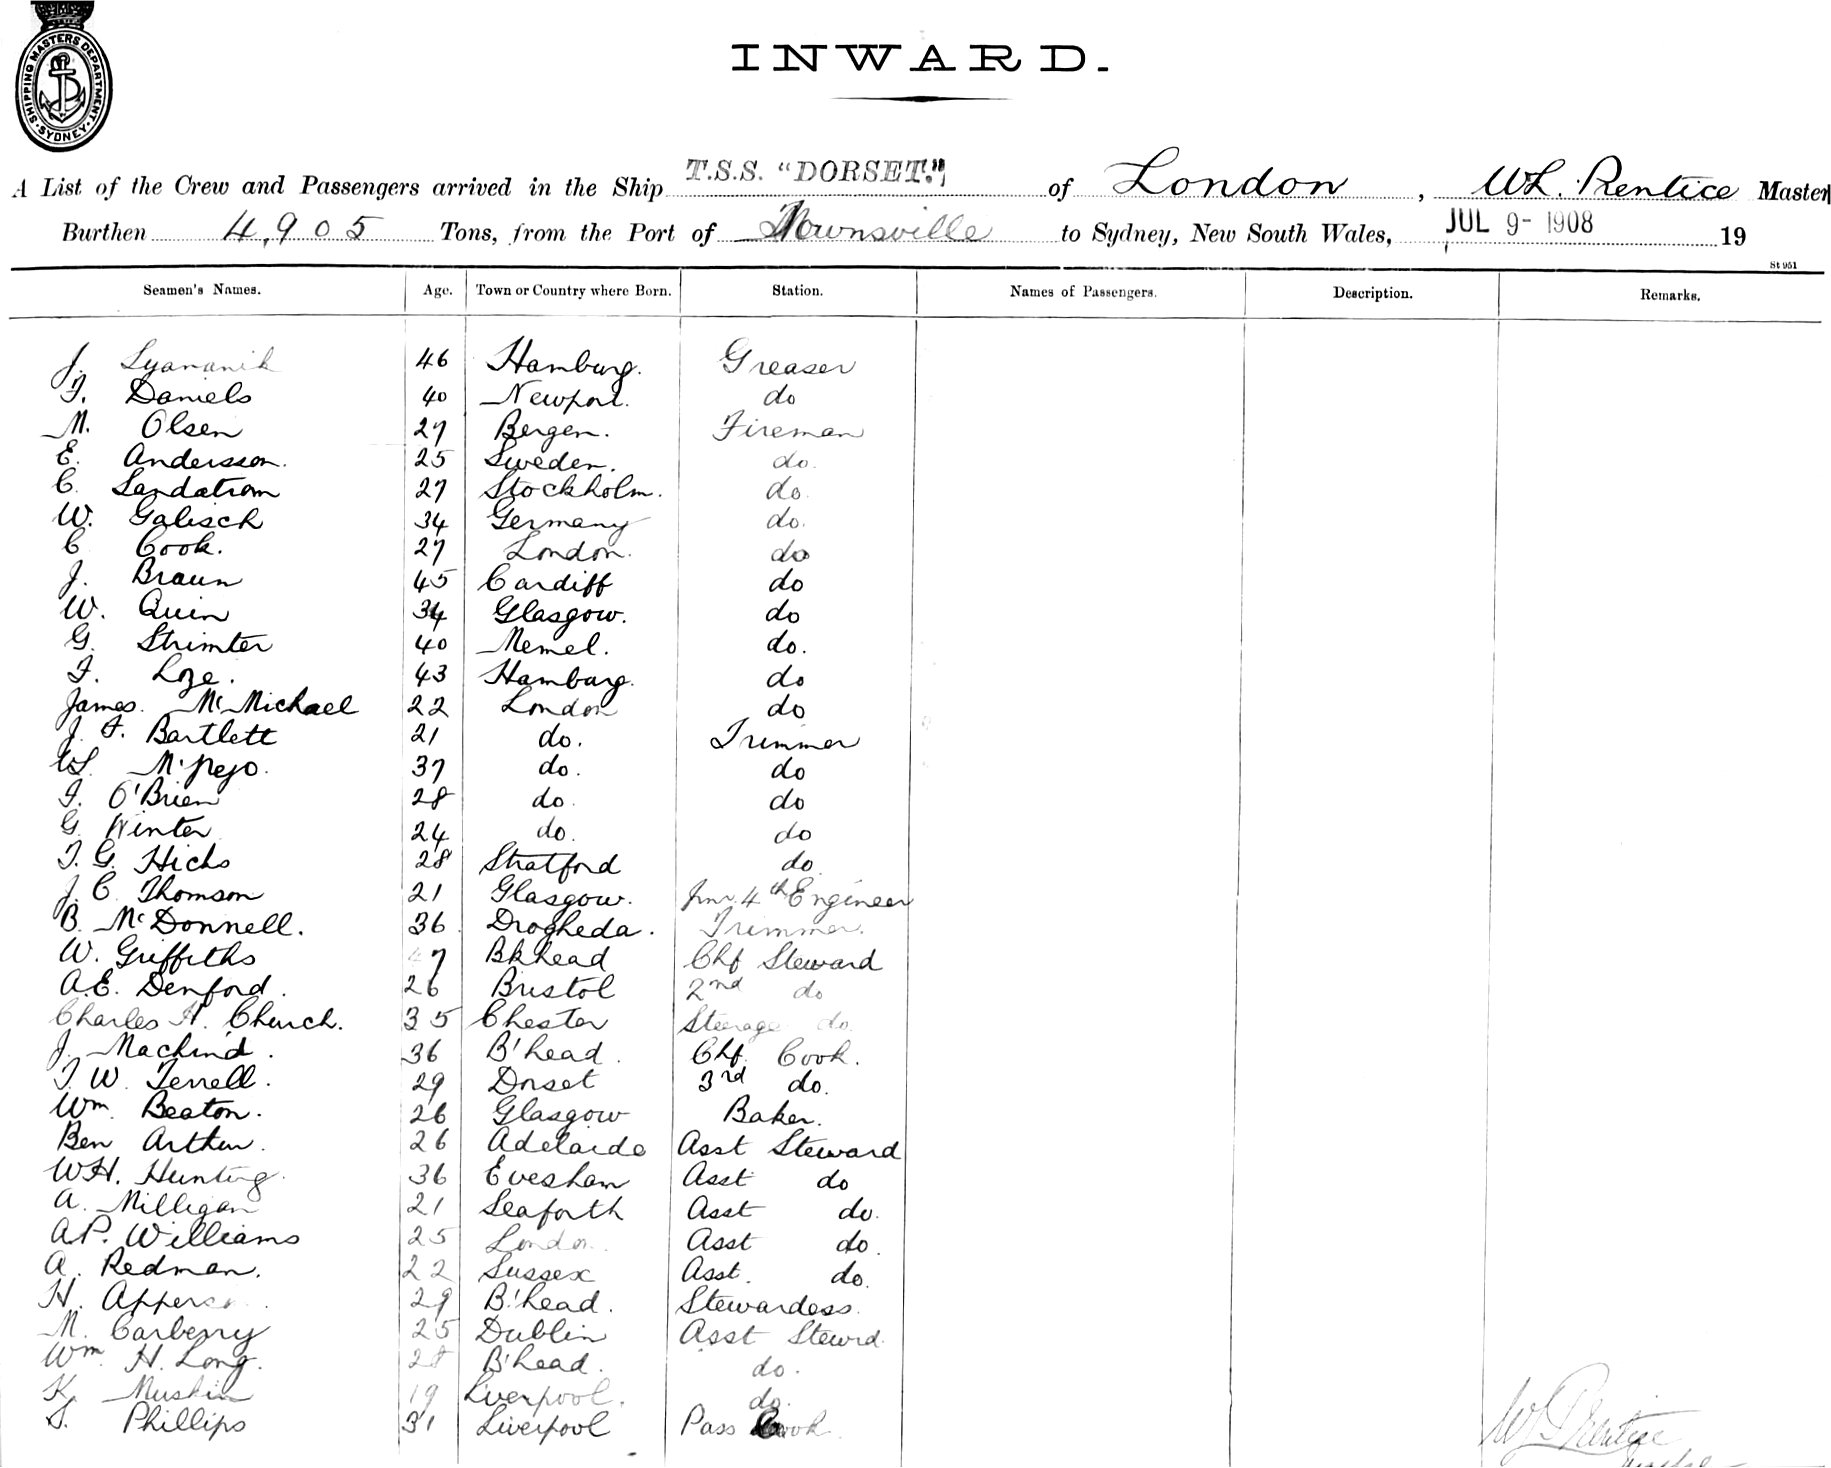 SHIPPING MASTERS DEPARTMENT · SYDNEY ·
INWARD.
A List of the Crew and Passengers arrived in the Ship T.S.S. "DORSET." of London, WL. Prentice Master
Burthen 4,905 Tons, from the Port of Townsville to Sydney, New South Wales, JUL 9- 1908 19
St 951
Seamen's Names. Age. Town or Country where Born. Station. Names of Passengers. Description. Remarks.
J. 46 Hamburg. Greaser
T. Daniels 40 Newport. do
M. Olsen 27 Bergen. Fireman
E. Andersson. 25 Sweden. do.
C. Landstrom 27 Stockholm. do.
W. Galisch 34 Germany do.
C Cook. 27 London. do
J. Braun 45 Cardiff do
W. Quin 34 Glasgow. do
G. Strimter 40 Memel. do.
F. Loze. 43 Hamburg. do
James. McMichael 22 London do
J. F. Bartlett 21 do. Trimmer
37 do. do
F. O'Brien 28 do. do
G. Winter 24 do. do
T. G. Hicks 28 Stratford do
J. C. Thomson 21 Glasgow. Jnr. 4th Engineer
B. McDonnell. 36 Drogheda. Trimmer.
W. Griffiths 47 Bkhead Chf Steward
A.E. Denford. 26 Bristol 2nd do
Charles H. Church. 35 Chester Steerage do.
J. Mackind. 36 B'head. Chf. Cook.
T. W. Terrell. 29 Dorset 3rd do.
Wm. Beaton. 26 Glasgow Baker.
Ben Arthur. 26 Adelaide Asst Steward
W.H. Hunting. 36 Evesham Asst do
A. Milligan 21 Seaforth Asst do.
A.P. Williams 25 London. Asst do.
A. Redman. 22 Sussex Asst. do.
H. 29 B'head. Stewardess.
M. Carberry 25 Dublin Asst Stewrd.
Wm. H. Long. 28 B'head. do.
K. Muskin 19 Liverpool. do.
S. Phillips 31 Liverpool Pass Cook.
WL Prentice
Master